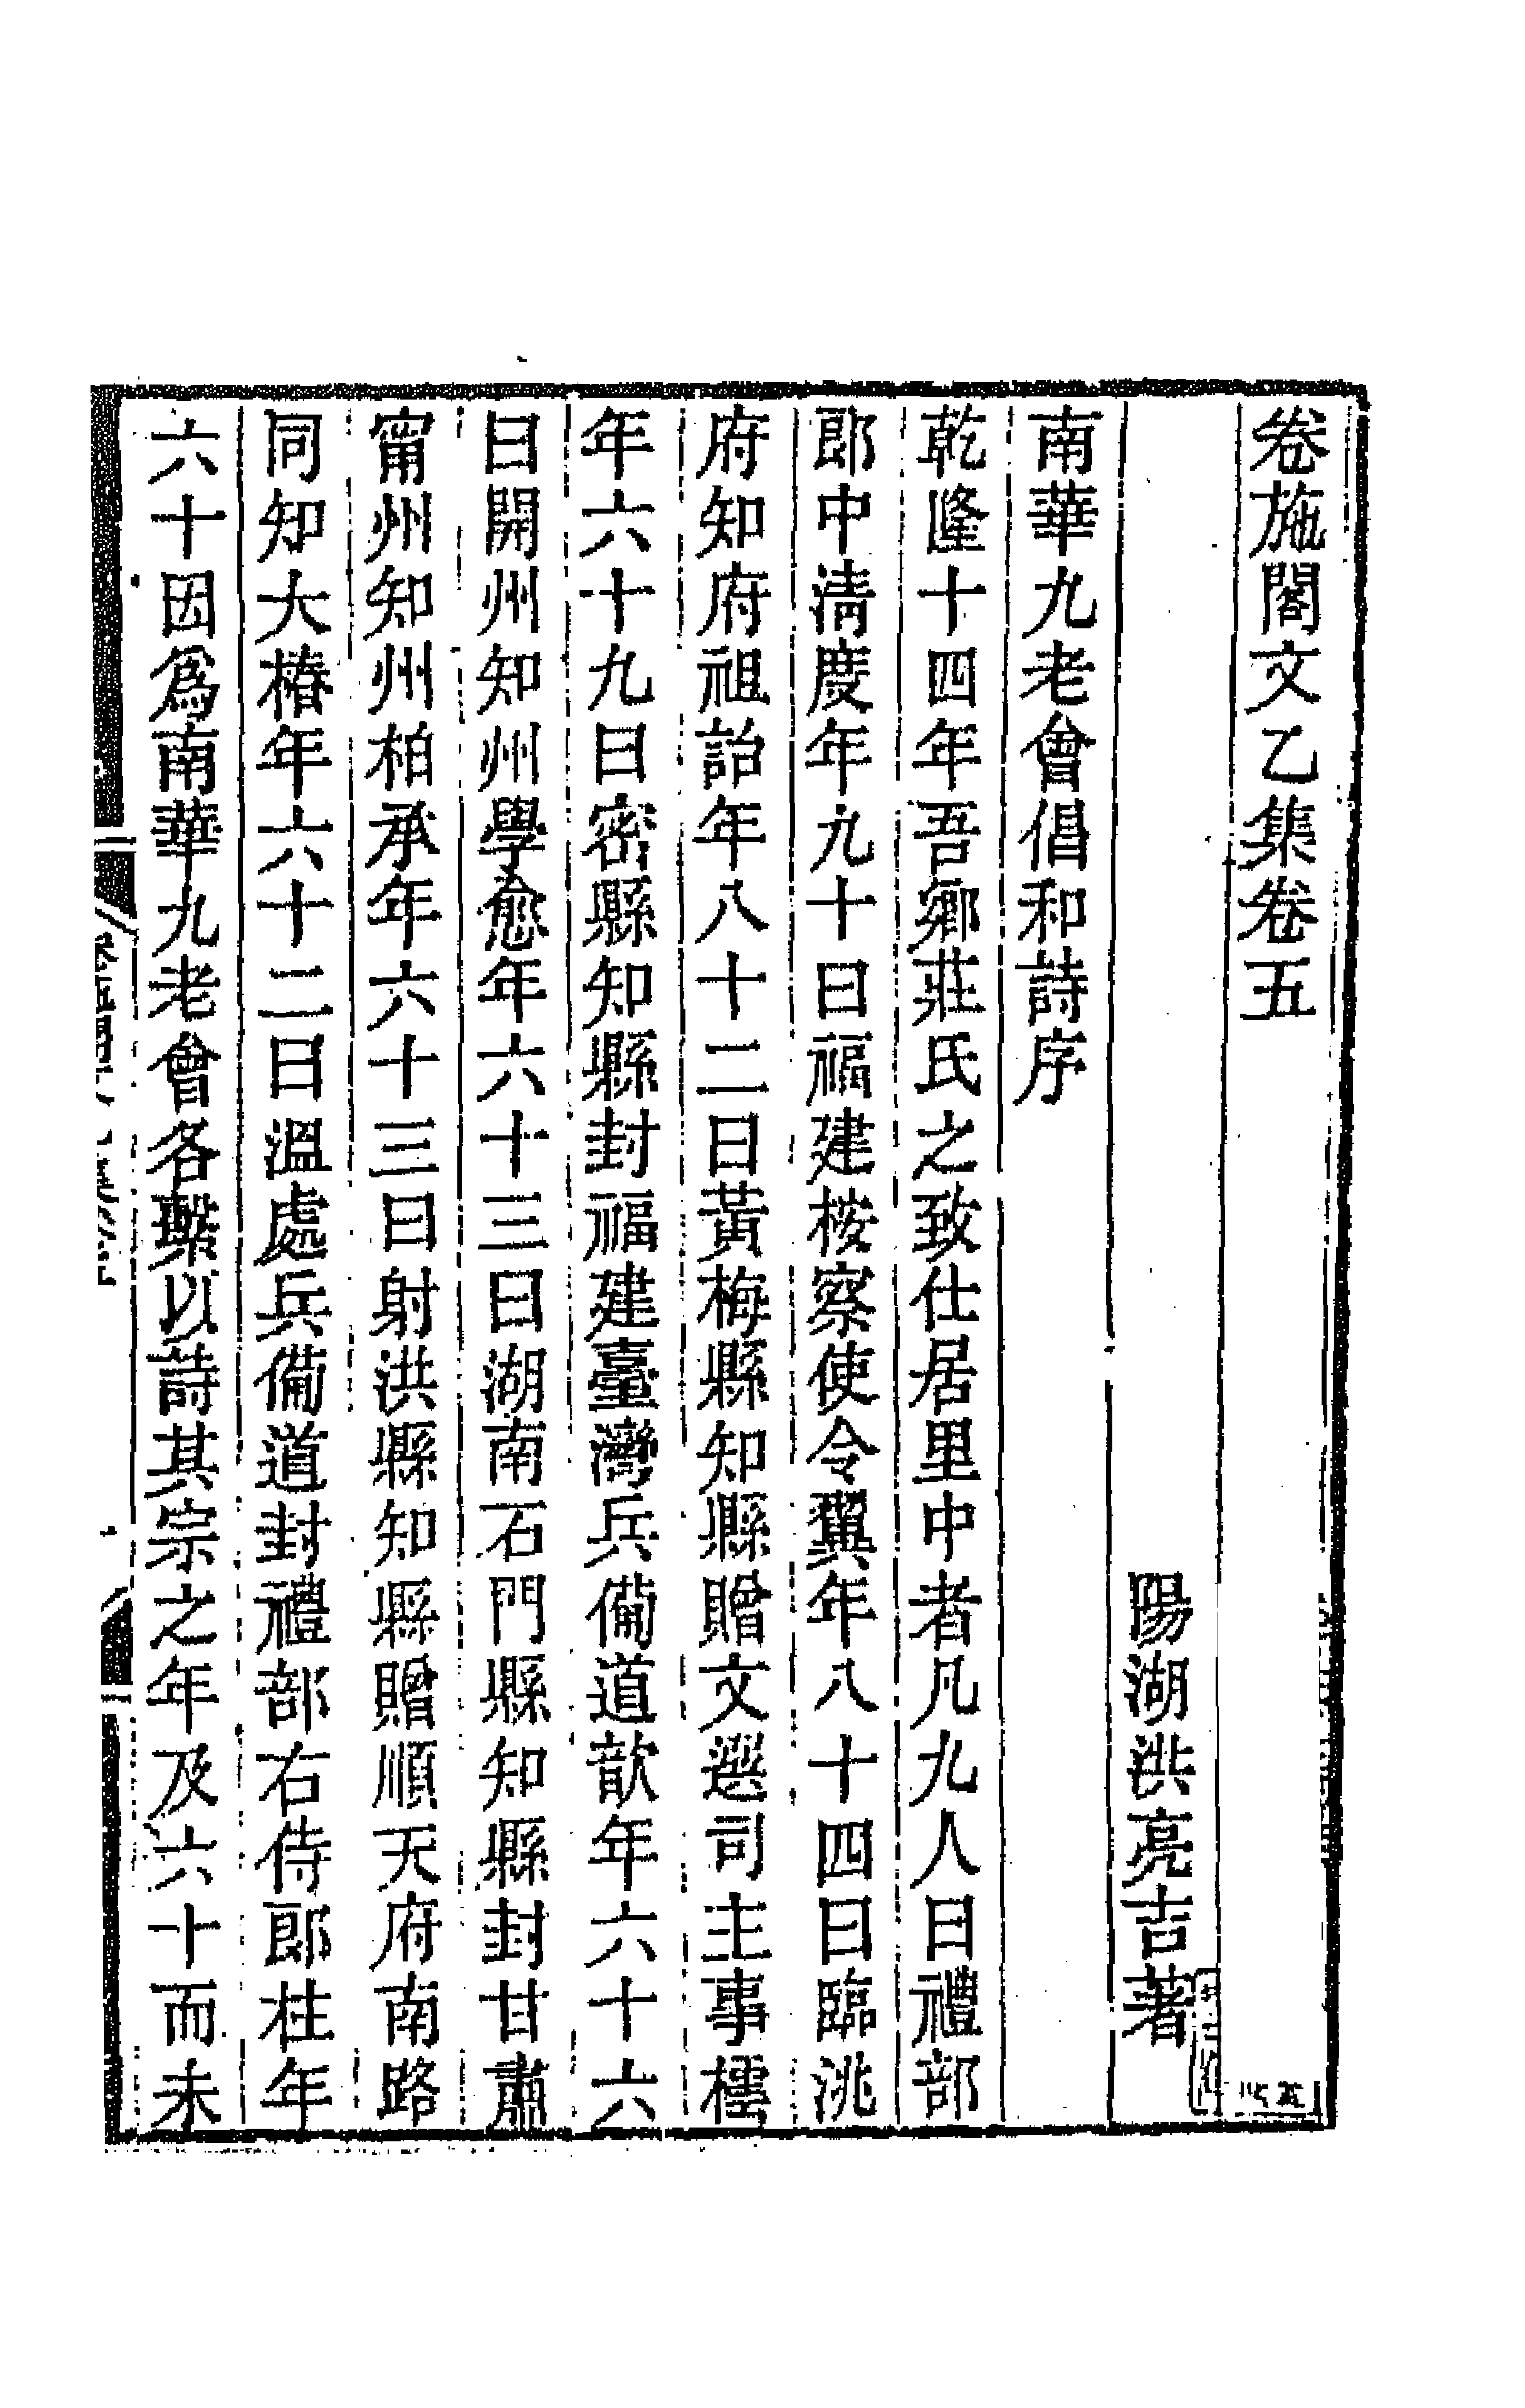 卷施閣文乙集卷五
陽湖洪亮吉著
南華九老會倡和詩序
乾隆十四年吾鄉莊氏之致仕居里中者凡九人曰禮部
郎中清度年九十曰福建按察使令翼年八十四曰臨洮
府知府祖詒年八十二曰黃梅縣知縣贈文選司主事櫄
年六十九曰密縣知縣封福建臺灣兵備道歆年六十六
曰開州知州學愈年六十三曰湖南石門縣知縣封甘肅
甯州知州柏承年六十三曰射洪縣知縣贈順天府南路
同知大椿年六十二曰溫處兵備道封禮部右侍郎柱年
六十因爲南華九老會各繫以詩其宗之年及六十而未